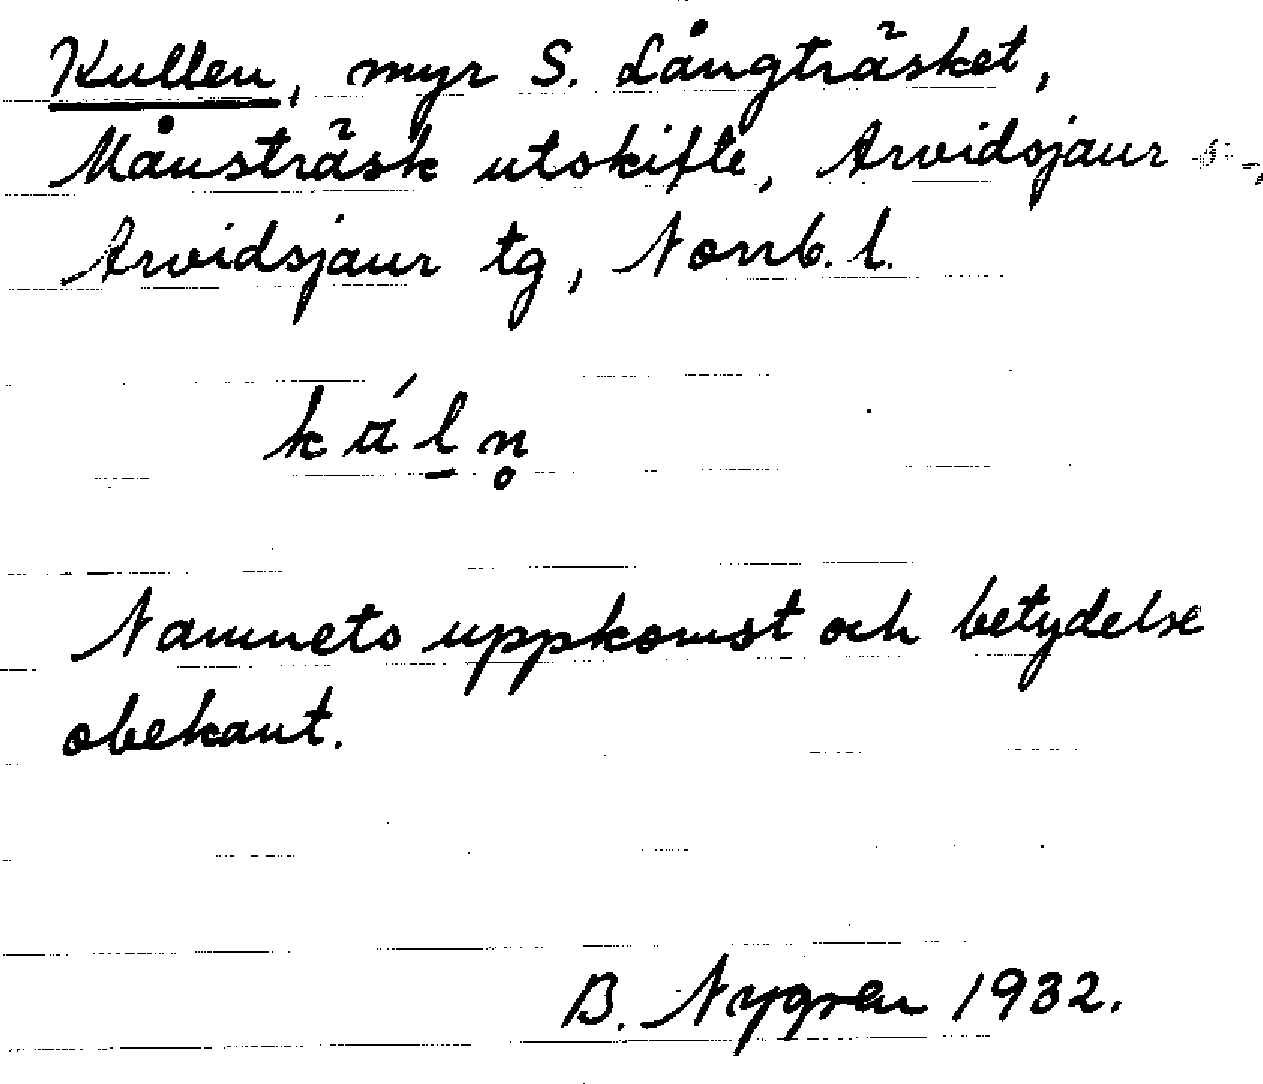 Kullen, myr S. Långträsket,
Månsträsk utskifte, Arvidsjaur sn,
Arvidsjaur tg, Norrb. l.
Namnets uppkomst och betydelse
obekant.
B. Nygren 1932.